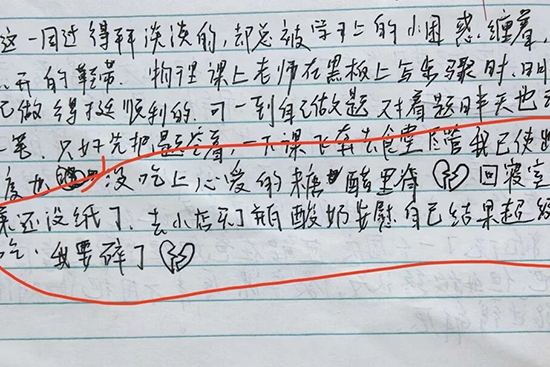 这一周过得平淡淡的,却总被学习上的小困惑缠着,
开的鞋带.物理课上老师在黑板上写步骤时,明明
己做得挺顺利的.可一到自己做题 对着题半天也
一笔.只好先把题空着,一下课飞奔去食堂尽管我已使出
度也 没吃上心爱的糖醋里脊 回寝室
还没纸了.去小店买了瓶酸奶安慰自己结果超级
吃.我要碎了